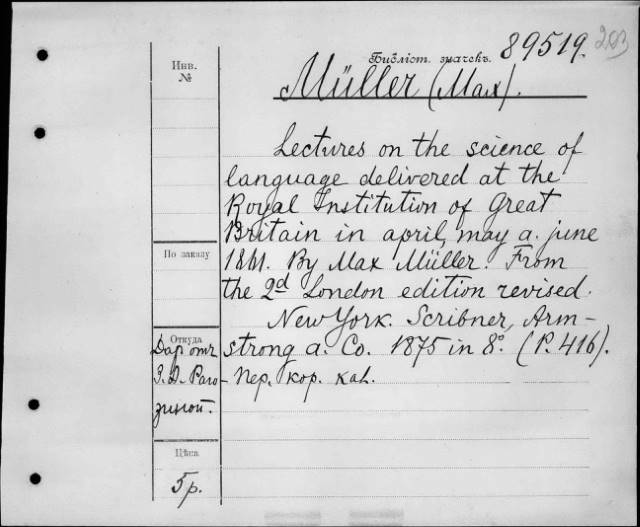 Инв.
№
Библіот. значекъ. 89519. 203
Müller (Max).
Lectures on the science of
language delivered at the
Royal Institution of Great
Britain in april, may a. june
1861. By Max Müller. From
the 2d London edition revised.
New York. Scribner, Arm-
strong a. Co. 1875 in 8º. (P. 416).
Пер. кор. каl.
По заказу
Откуда
Дар отъ
З. А. Раго-
зиной.
Цѣна
5 р.